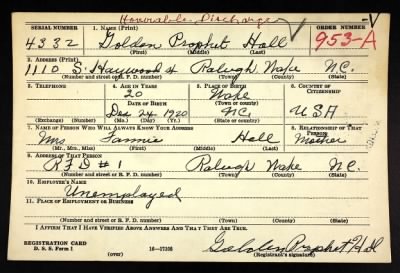 Honorable Discharge
SERIAL NUMBER 1. NAME (Print) ORDER NUMBER
4332 Golden Prophet Hall 953-A
(First) (Middle) (Last)
2. ADDRESS (Print)
1110 S. Haywood st Raleigh Wake N.C.
(Number and street or R. F. D. number) (Town) (County) (State)
3. TELEPHONE 4. AGE IN YEARS 5. PLACE OF BIRTH 6. COUNTRY OF CITIZENSHIP
20 Wake
DATE OF BIRTH (Town or county)
Dec 24 1920 N.C. USA
(Exchange) (Number) (Mo.) (Day) (Yr.) (State or country)
7. NAME OF PERSON WHO WILL ALWAYS KNOW YOUR ADDRESS 8. RELATIONSHIP OF THAT PERSON
Mrs Fannie Hall Mother
(Mr., Mrs., Miss) (First) (Middle) (Last)
9. ADDRESS OF THAT PERSON
RFD #1 Raleigh Wake N.C.
(Number and street or R. F. D. number) (Town) (County) (State)
10. EMPLOYER'S NAME
Unemployed
11. PLACE OF EMPLOYMENT OR BUSINESS
(Number and street or R. F. D. number) (Town) (County) (State)
I AFFIRM THAT I HAVE VERIFIED ABOVE ANSWERS AND THAT THEY ARE TRUE.
REGISTRATION CARD
D. S. S. Form 1 (over) 16-17105 Golden Prophet Hall
(Registrant's signature)